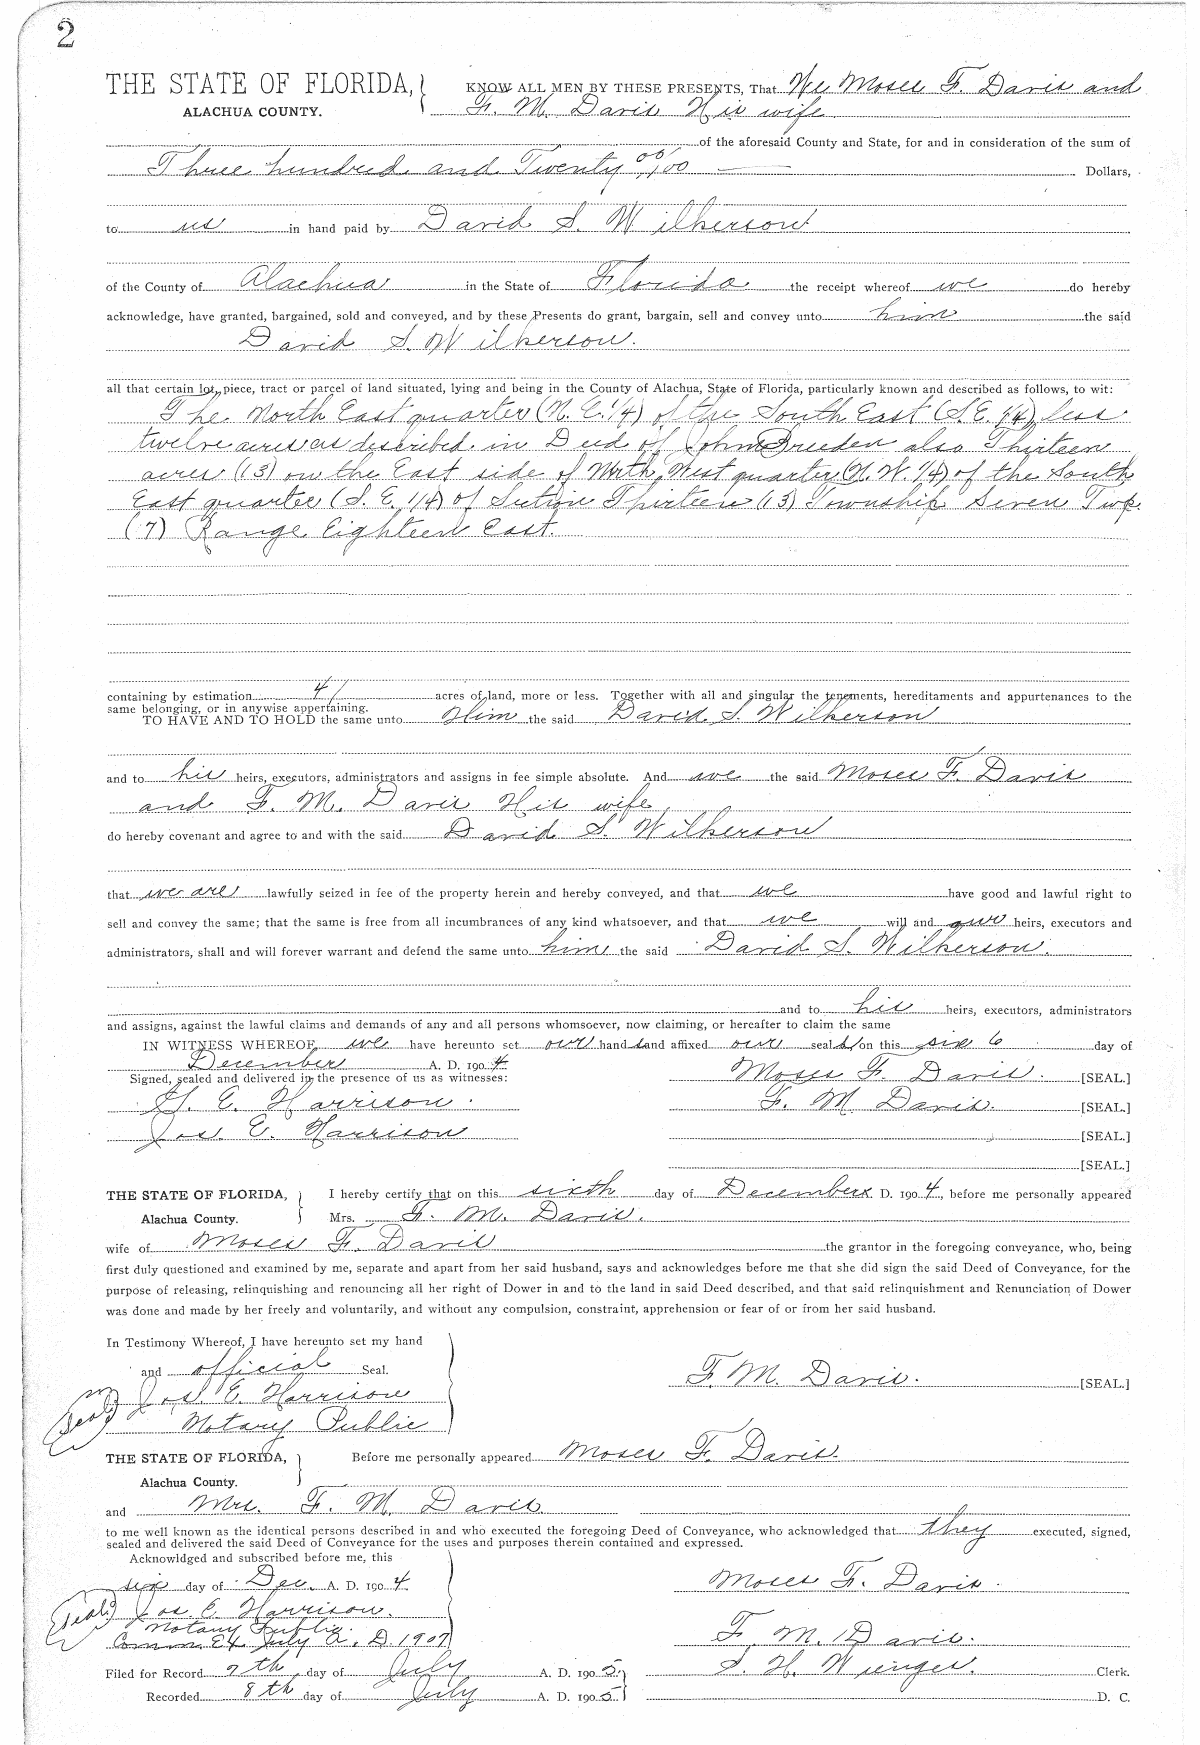 2
THE STATE OF FLORIDA, KNOW ALL MEN BY THESE PRESENTS, That We Moses F. Davis and
ALACHUA COUNTY. F. M. Davis His wife
of the aforesaid County and State, for and in consideration of the sum of
Three hundred and Twenty 00/100 Dollars,
to us in hand paid by David S. Wilkerson
of the County of Alachua in the State of Florida the receipt whereof we do hereby
acknowledge, have granted, bargained, sold and conveyed, and by these Presents do grant, bargain, sell and convey unto him the said
David S. Wilkerson.
all that certain lot, piece, tract or parcel of land situated, lying and being in the County of Alachua, State of Florida, particularly known and described as follows, to wit:
The North East quarter (N. E. 1/4) of the South East (S. E. 1/4) less
twelve acres as described in Deed of John Breeden also Thirteen
acres (13) on the East side of North West quarter (N. W. 1/4) of the South
East quarter (S. E. 1/4) of Section Thirteen (13) Township Seven Twp.
(7) Range Eighteen East.
containing by estimation 41 acres of land, more or less. Together with all and singular the tenements, hereditaments and appurtenances to the
same belonging, or in anywise appertaining.
TO HAVE AND TO HOLD the same unto Him the said David S. Wilkerson
and to his heirs, executors, administrators and assigns in fee simple absolute. And we the said Moses F. Davis
and F. M. Davis His wife
do hereby covenant and agree to and with the said David S. Wilkerson
that we are lawfully seized in fee of the property herein and hereby conveyed, and that we have good and lawful right to
sell and convey the same; that the same is free from all incumbrances of any kind whatsoever, and that we will and our heirs, executors and
administrators, shall and will forever warrant and defend the same unto him the said David S. Wilkerson.
and to his heirs, executors, administrators
and assigns, against the lawful claims and demands of any and all persons whomsoever, now claiming, or hereafter to claim the same
IN WITNESS WHEREOF, we have hereunto set our hands and affixed our seals on this six 6 day of
December A. D. 1904 Moses F. Davis. [SEAL.]
Signed, sealed and delivered in the presence of us as witnesses:
G. E. Harrison. F. M Davis. [SEAL.]
Jos. E. Harrison [SEAL.]
[SEAL.]
THE STATE OF FLORIDA, I hereby certify that on this sixth day of December A. D. 1904, before me personally appeared
Alachua County. Mrs. F. M. Davis.
wife of Moses F. Davis the grantor in the foregoing conveyance, who, being
first duly questioned and examined by me, separate and apart from her said husband, says and acknowledges before me that she did sign the said Deed of Conveyance, for the
purpose of releasing, relinquishing and renouncing all her right of Dower in and to the land in said Deed described, and that said relinquishment and Renunciation of Dower
was done and made by her freely and voluntarily, and without any compulsion, constraint, apprehension or fear of or from her said husband.
In Testimony Whereof, I have hereunto set my hand
and official Seal. F. M. Davis. [SEAL.]
(Seal) Jos. E. Harrison
Notary Public
THE STATE OF FLORIDA, Before me personally appeared Moses F. Davis.
Alachua County.
and Mrs. F. M. Davis
to me well known as the identical persons described in and who executed the foregoing Deed of Conveyance, who acknowledged that they executed, signed,
sealed and delivered the said Deed of Conveyance for the uses and purposes therein contained and expressed.
Acknowldged and subscribed before me, this
six day of Dec. A. D. 1904 Moses F. Davis.
(Seal) Jos. E. Harrison.
Notary Public. F. M. Davis.
Comm. Ex July A. D. 1907
Filed for Record 7th day of July A. D. 1905 S. H. Wienges. Clerk.
Recorded 8th day of July A. D. 1905 D. C.